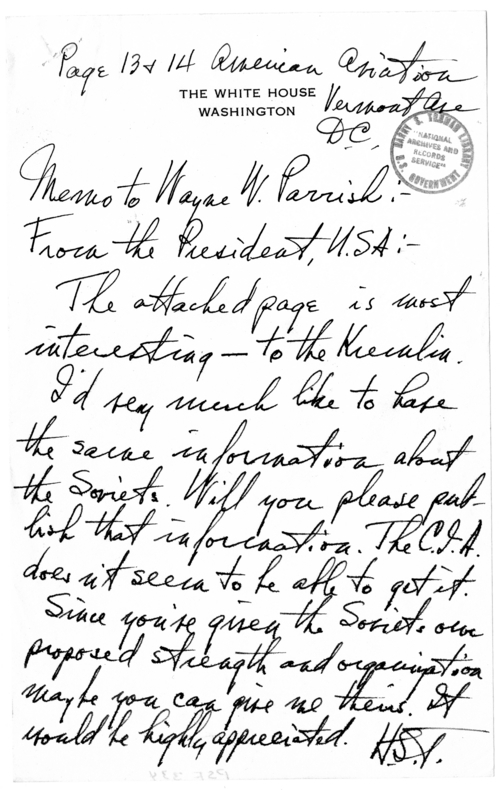 Page 13 & 14 American Aviation
THE WHITE HOUSE
WASHINGTON
Vermont Ave
D.C.
HARRY S. TRUMAN LIBRARY
"NATIONAL
ARCHIVES AND
RECORDS
SERVICE"
U.S. GOVERNMENT
Memo to Wayne W. Parrish:-
From the President, U.S.A:-
The attached page is most
interesting — to the Kremlin.
I'd very much like to have
the same information about
the Soviets. Will you please pub-
lish that information. The C.I.A.
does n't seem to be able to get it.
Since you've given the Soviets our
proposed strength and organization
maybe you can give me theirs. It
would be highly appreciated.
H.S.T.